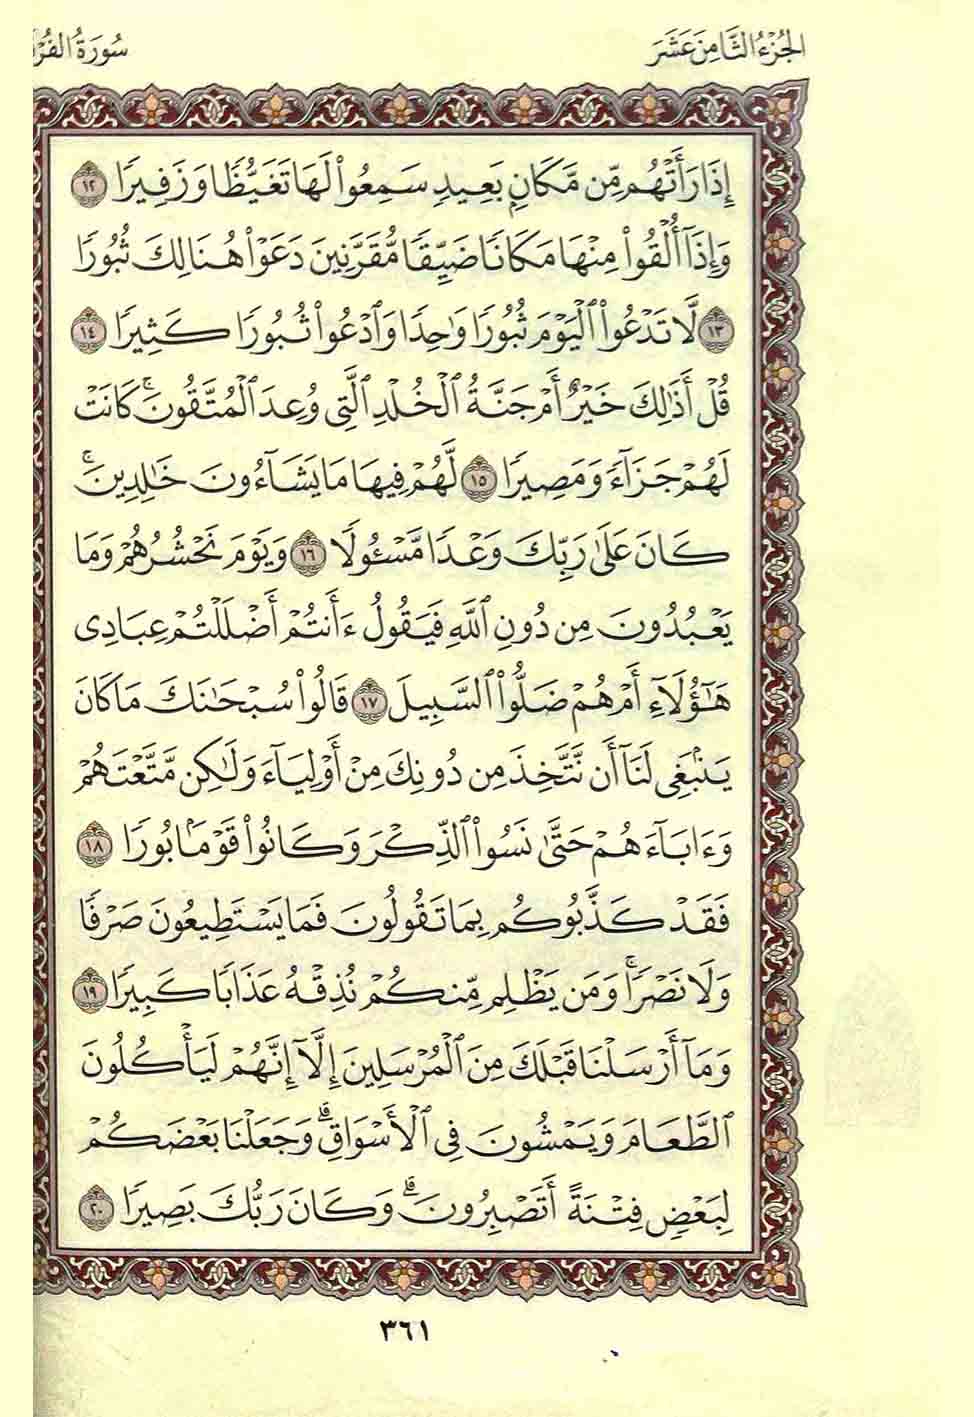 الجُزْءُ الثَّامِنَ عَشَرَ
سُورَةُ الفُرْ
إِذَا رَأَتْهُم مِّن مَّكَانٍۭ بَعِيدٍ سَمِعُوا۟ لَهَا تَغَيُّظًا وَزَفِيرًا ١٢
وَإِذَآ أُلْقُوا۟ مِنْهَا مَكَانًا ضَيِّقًا مُّقَرَّنِينَ دَعَوْا۟ هُنَالِكَ ثُبُورًا
١٣ لَّا تَدْعُوا۟ ٱلْيَوْمَ ثُبُورًا وَٰحِدًا وَٱدْعُوا۟ ثُبُورًا كَثِيرًا ١٤
قُلْ أَذَٰلِكَ خَيْرٌ أَمْ جَنَّةُ ٱلْخُلْدِ ٱلَّتِى وُعِدَ ٱلْمُتَّقُونَ ۚ كَانَتْ
لَهُمْ جَزَآءً وَمَصِيرًا ١٥ لَّهُمْ فِيهَا مَا يَشَآءُونَ خَٰلِدِينَ ۚ
كَانَ عَلَىٰ رَبِّكَ وَعْدًا مَّسْـُٔولًا ١٦ وَيَوْمَ نَحْشُرُهُمْ وَمَا
يَعْبُدُونَ مِن دُونِ ٱللَّهِ فَيَقُولُ ءَأَنتُمْ أَضْلَلْتُمْ عِبَادِى
هَٰٓؤُلَآءِ أَمْ هُمْ ضَلُّوا۟ ٱلسَّبِيلَ ١٧ قَالُوا۟ سُبْحَٰنَكَ مَا كَانَ
يَنۢبَغِى لَنَآ أَن نَّتَّخِذَ مِن دُونِكَ مِنْ أَوْلِيَآءَ وَلَٰكِن مَّتَّعْتَهُمْ
وَءَابَآءَهُمْ حَتَّىٰ نَسُوا۟ ٱلذِّكْرَ وَكَانُوا۟ قَوْمًۢا بُورًا ١٨
فَقَدْ كَذَّبُوكُم بِمَا تَقُولُونَ فَمَا يَسْتَطِيعُونَ صَرْفًا
وَلَا نَصْرًا ۚ وَمَن يَظْلِم مِّنكُمْ نُذِقْهُ عَذَابًا كَبِيرًا ١٩
وَمَآ أَرْسَلْنَا قَبْلَكَ مِنَ ٱلْمُرْسَلِينَ إِلَّآ إِنَّهُمْ لَيَأْكُلُونَ
ٱلطَّعَامَ وَيَمْشُونَ فِى ٱلْأَسْوَاقِ ۗ وَجَعَلْنَا بَعْضَكُمْ
لِبَعْضٍ فِتْنَةً أَتَصْبِرُونَ ۗ وَكَانَ رَبُّكَ بَصِيرًا ٢٠
٣٦١